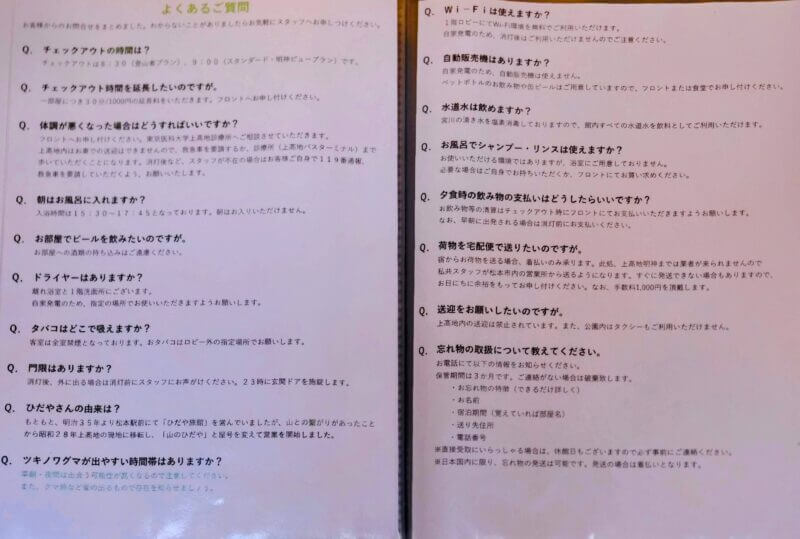 よくあるご質問
お客様からのお問合せをまとめました。わからないことがありましたらお気軽にスタッフへお申しつけください。
Q. チェックアウトの時間は？
チェックアウトは８：３０（登山者プラン）、９：００（スタンダード・明神ビュープラン）です。
Q. チェックアウト時間を延長したいのですが。
一部屋につき３０分/1000円の延長料をいただきます。フロントへお申し付けください。
Q. 体調が悪くなった場合はどうすればいいですか？
フロントへお申し付けください。東京医科大学上高地診療所へご相談させていただきます。
上高地内はお車での送迎はできませんので、救急車を要請するか、診療所（上高地バスターミナル）まで
歩いていただくことになります。消灯後など、スタッフが不在の場合はお客様ご自身で１１９番通報、
救急車を要請していただくよう、お願いいたします。
Q. 朝はお風呂に入れますか？
入浴時間は１５：３０～１７：４５となっております。朝はお入りいただけません。
Q. お部屋でビールを飲みたいのですが。
お部屋への酒類の持ち込みはご遠慮ください。
Q. ドライヤーはありますか？
離れ浴室と１階洗面所にございます。
自家発電のため、指定の場所でお使いいただきますようお願いします。
Q. タバコはどこで吸えますか？
客室は全室禁煙となっております。おタバコはロビー外の指定場所でお願いします。
Q. 門限はありますか？
消灯後、外に出る場合は消灯前にスタッフにお声がけください。２３時に玄関ドアを施錠します。
Q. ひだやさんの由来は？
もともと、明治３５年より松本駅前にて「ひだや旅館」を営んでいましたが、山との繋がりがあったこと
から昭和２８年上高地の現地に移転し、「山のひだや」と屋号を変えて営業を開始しました。
Q. ツキノワグマが出やすい時間帯はありますか？
早朝・夜間は出会う可能性が高くなるので注意してください。
また、クマ鈴など音の出るもので存在を知らせましょう。
Q. Ｗｉ－Ｆｉは使えますか？
１階ロビーにてWi-Fi環境を無料でご利用いただけます。
自家発電のため、消灯後はご利用いただけませんのでご注意ください。
Q. 自動販売機はありますか？
自家発電のため、自動販売機は使えません。
ペットボトルのお飲み物や缶ビールはご用意していますので、フロントまたは食堂でお申し付けください。
Q. 水道水は飲めますか？
宮川の湧き水を塩素消毒しておりますので、館内すべての水道水を飲料としてご利用いただけます。
Q. お風呂でシャンプー・リンスは使えますか？
お使いいただける環境ではありますが、浴室にご用意しておりません。
必要な場合はご自身でお持ちいただくか、フロントにてお買い求めください。
Q. 夕食時の飲み物の支払いはどうしたらいいですか？
お飲み物等の清算はチェックアウト時にフロントにてお支払いいただきますようお願いします。
なお、早朝に出発される場合は消灯前にお支払いください。
Q. 荷物を宅配便で送りたいのですが。
宿からお荷物を送る場合、着払いのみ承ります。此処、上高地明神までは業者が来られませんので
私共スタッフが松本市内の営業所から送るようになります。すぐに発送できない場合もありますので、
お日にちに余裕をもってお申し付けください。なお、手数料1,000円を頂戴します。
Q. 送迎をお願いしたいのですが。
上高地内の送迎は禁止されています。また、公園内はタクシーもご利用いただけません。
Q. 忘れ物の取扱について教えてください。
お電話にて以下の情報をお知らせください。
保管期間は３か月です。ご連絡がない場合は破棄致します。
・お忘れ物の特徴（できるだけ詳しく）
・お名前
・宿泊期間（覚えていれば部屋名）
・送り先住所
・電話番号
※直接受取にいらっしゃる場合は、休館日もございますので必ず事前にご連絡ください。
※日本国内に限り、忘れ物の発送は可能です。発送の場合は着払いとなります。